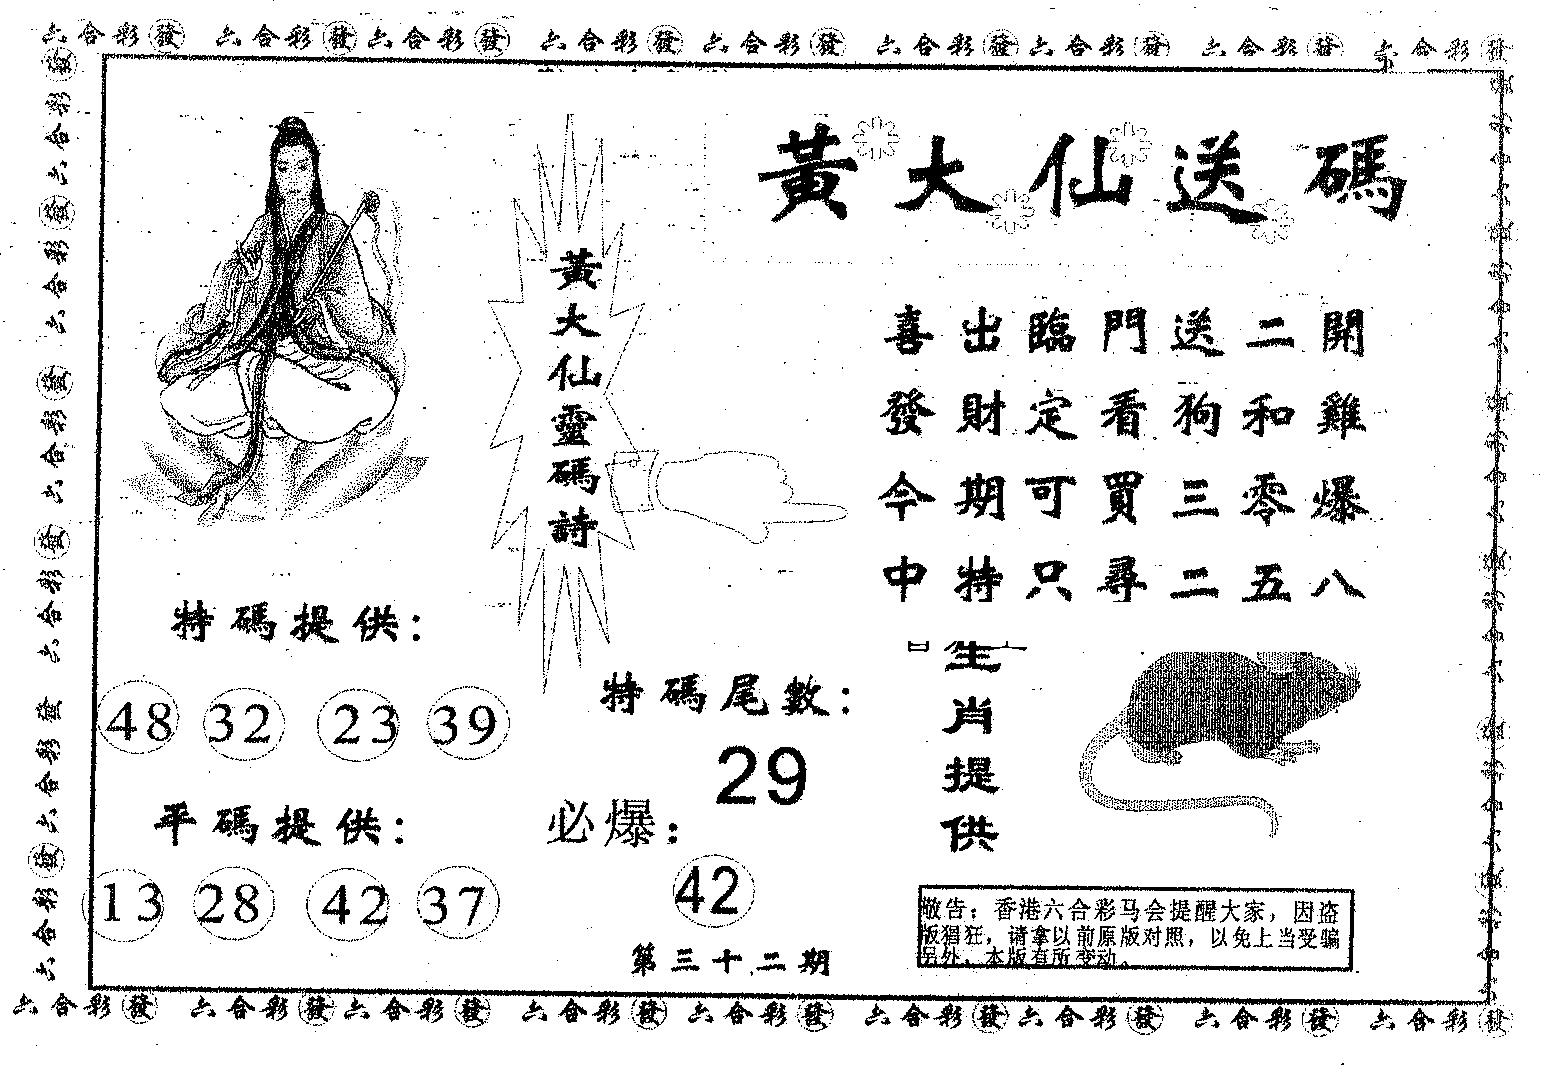 六合彩發 六合彩發 六合彩發 六合彩發 六合彩發 六合彩發 六合彩發 六合彩發 六合彩發
黃大仙送碼
黃大仙靈碼詩
喜出臨門送二開
發財定看狗和雞
今期可買三零爆
中特只尋二五八
特碼提供：
48 32 23 39
平碼提供：
13 28 42 37
特碼尾數：
29
必爆：
42
第三十二期
生肖提供
敬告：香港六合彩马会提醒大家，因盗
版猖狂，请拿以前原版对照，以免上当受骗
另外，本版有所变动。
六合彩發 六合彩發 六合彩發 六合彩發 六合彩發 六合彩發 六合彩發 六合彩發 六合彩發